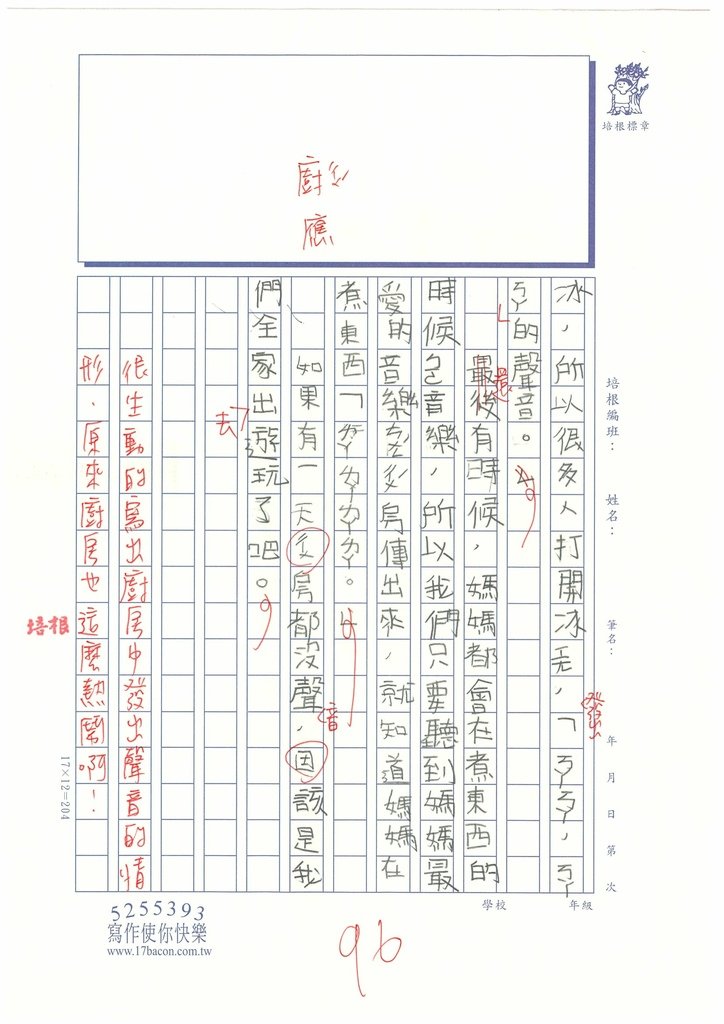 廚
應
培根標章
培根編班：　姓名：　筆名：　年　月　日　第　次
學校　年級
冰，所以很多人打開冰ㄒㄧㄤ，「ㄎㄎ，ㄎ
發出
ㄎ的聲音。
最後有時候，媽媽都會在煮東西的
還
時候ㄅㄛ音樂，所以我們只要聽到媽媽最
愛的音樂從ㄔㄨˊ房傳出來，就知道媽媽在
煮東西「ㄉㄉㄉㄉ。
如果有一天ㄔㄨˊ房都沒聲，因該是我
音
們全家出遊玩了吧。
去
很生動的寫出廚房中發出聲音的情
形，原來廚房也這麼熱鬧啊！
培根
17×12=204
5255393
寫作使你快樂
www.17bacon.com.tw
96